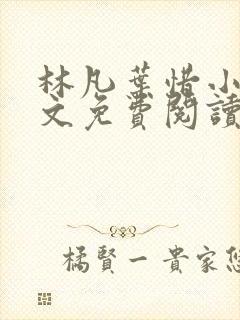 林凡葉惜小
文免費閱讀
橘賢一貴家您